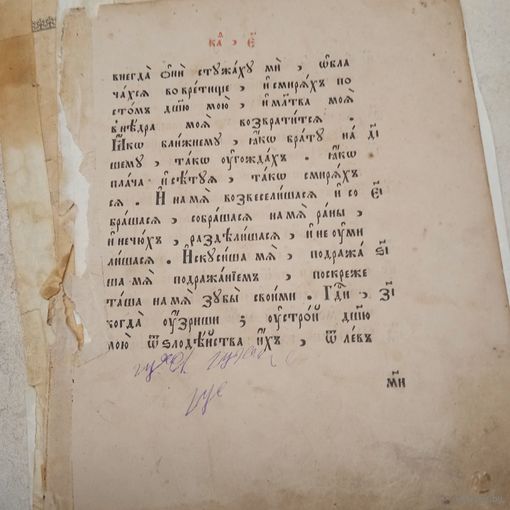 каⷴ , є҃
внегда̀ ѻ҆нѝ стꙋжа́хꙋ мѝ , ѡ҆бла
ча́хсѧ во вре́тище , и҆ смирѧ́хъ по
сто́мъ дш҃ꙋ мою̀ , и҆ мл҃тва моѧ̀
в нѣ́дра моѧ̀ возврати́тсѧ .
Ꙗ҆́кѡ бли́жнемꙋ , ꙗ҆́кѡ бра́тꙋ на́ д҃і
шемꙋ , та́кѡ оу҆гожда́хъ . ꙗ҆́кѡ
пла́ча и҆ сѣ́тꙋѧ , та́кѡ смирѧ́хъ
сѧ . И҆ на мѧ̀ возвесели́шасѧ и҆ со є҃і
бра́шасѧ , собра́шасѧ на мѧ̀ ра́ны ,
и҆ не чю́хъ , раздѣли́шасѧ , и҆ не оу҆ми
ли́шасѧ . И҆скꙋси́ша мѧ̀ , подража́ ѕ҃і
ша мѧ̀ подража́нїемъ , поскреже
та́ша на мѧ̀ зꙋбы̀ свои́ми . Гдⷭ҇и , з҃і
когда̀ оу҆́зриши ; оу҆стро́й дш҃ꙋ
мою̀ ѿ ѕлодѣ́йства и҆́хъ , ѿ ле́въ
м҃и